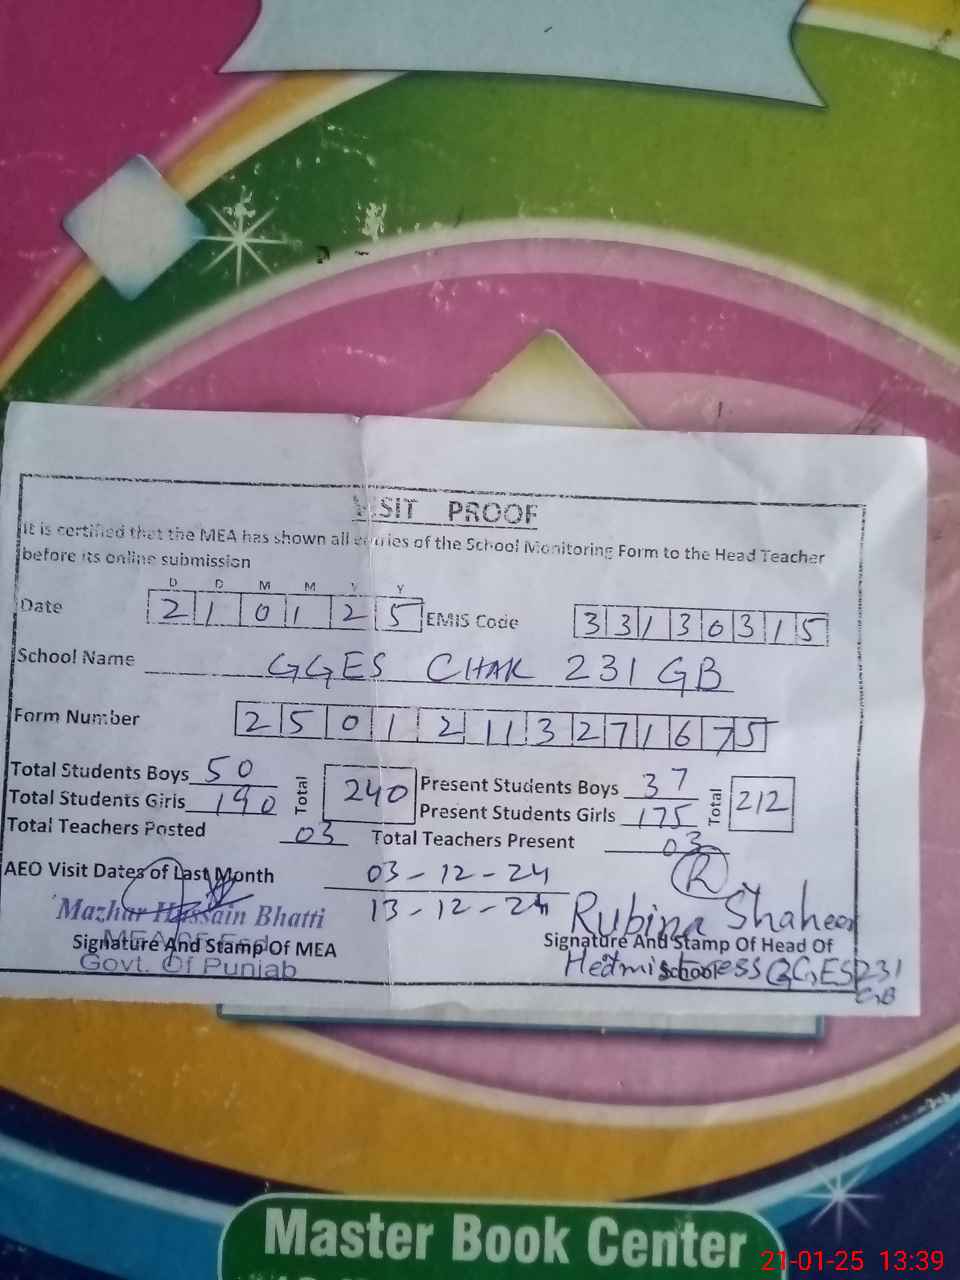 VISIT PROOF
It is certified that the MEA has shown all entries of the School Monitoring Form to the Head Teacher
before its online submission
D D M M Y Y
Date 2 1 0 1 2 5 EMIS Code 3 3 1 3 0 3 1 5
School Name GGES CHAK 231 GB
Form Number 2 5 0 1 2 1 1 3 2 7 1 6 7 5
Total Students Boys 50 Total 240 Present Students Boys 37 Total 212
Total Students Girls 190 Present Students Girls 175
Total Teachers Posted 03 Total Teachers Present 03
AEO Visit Dates of Last Month 03-12-24
13-12-24
R
Mazhar Hussain Bhatti Rubina Shaheen
Signature And Stamp Of MEA Signature And Stamp Of Head Of
School
Govt. Of Punjab Hedmistress GGES 231
GB
Master Book Center
21-01-25 13:39